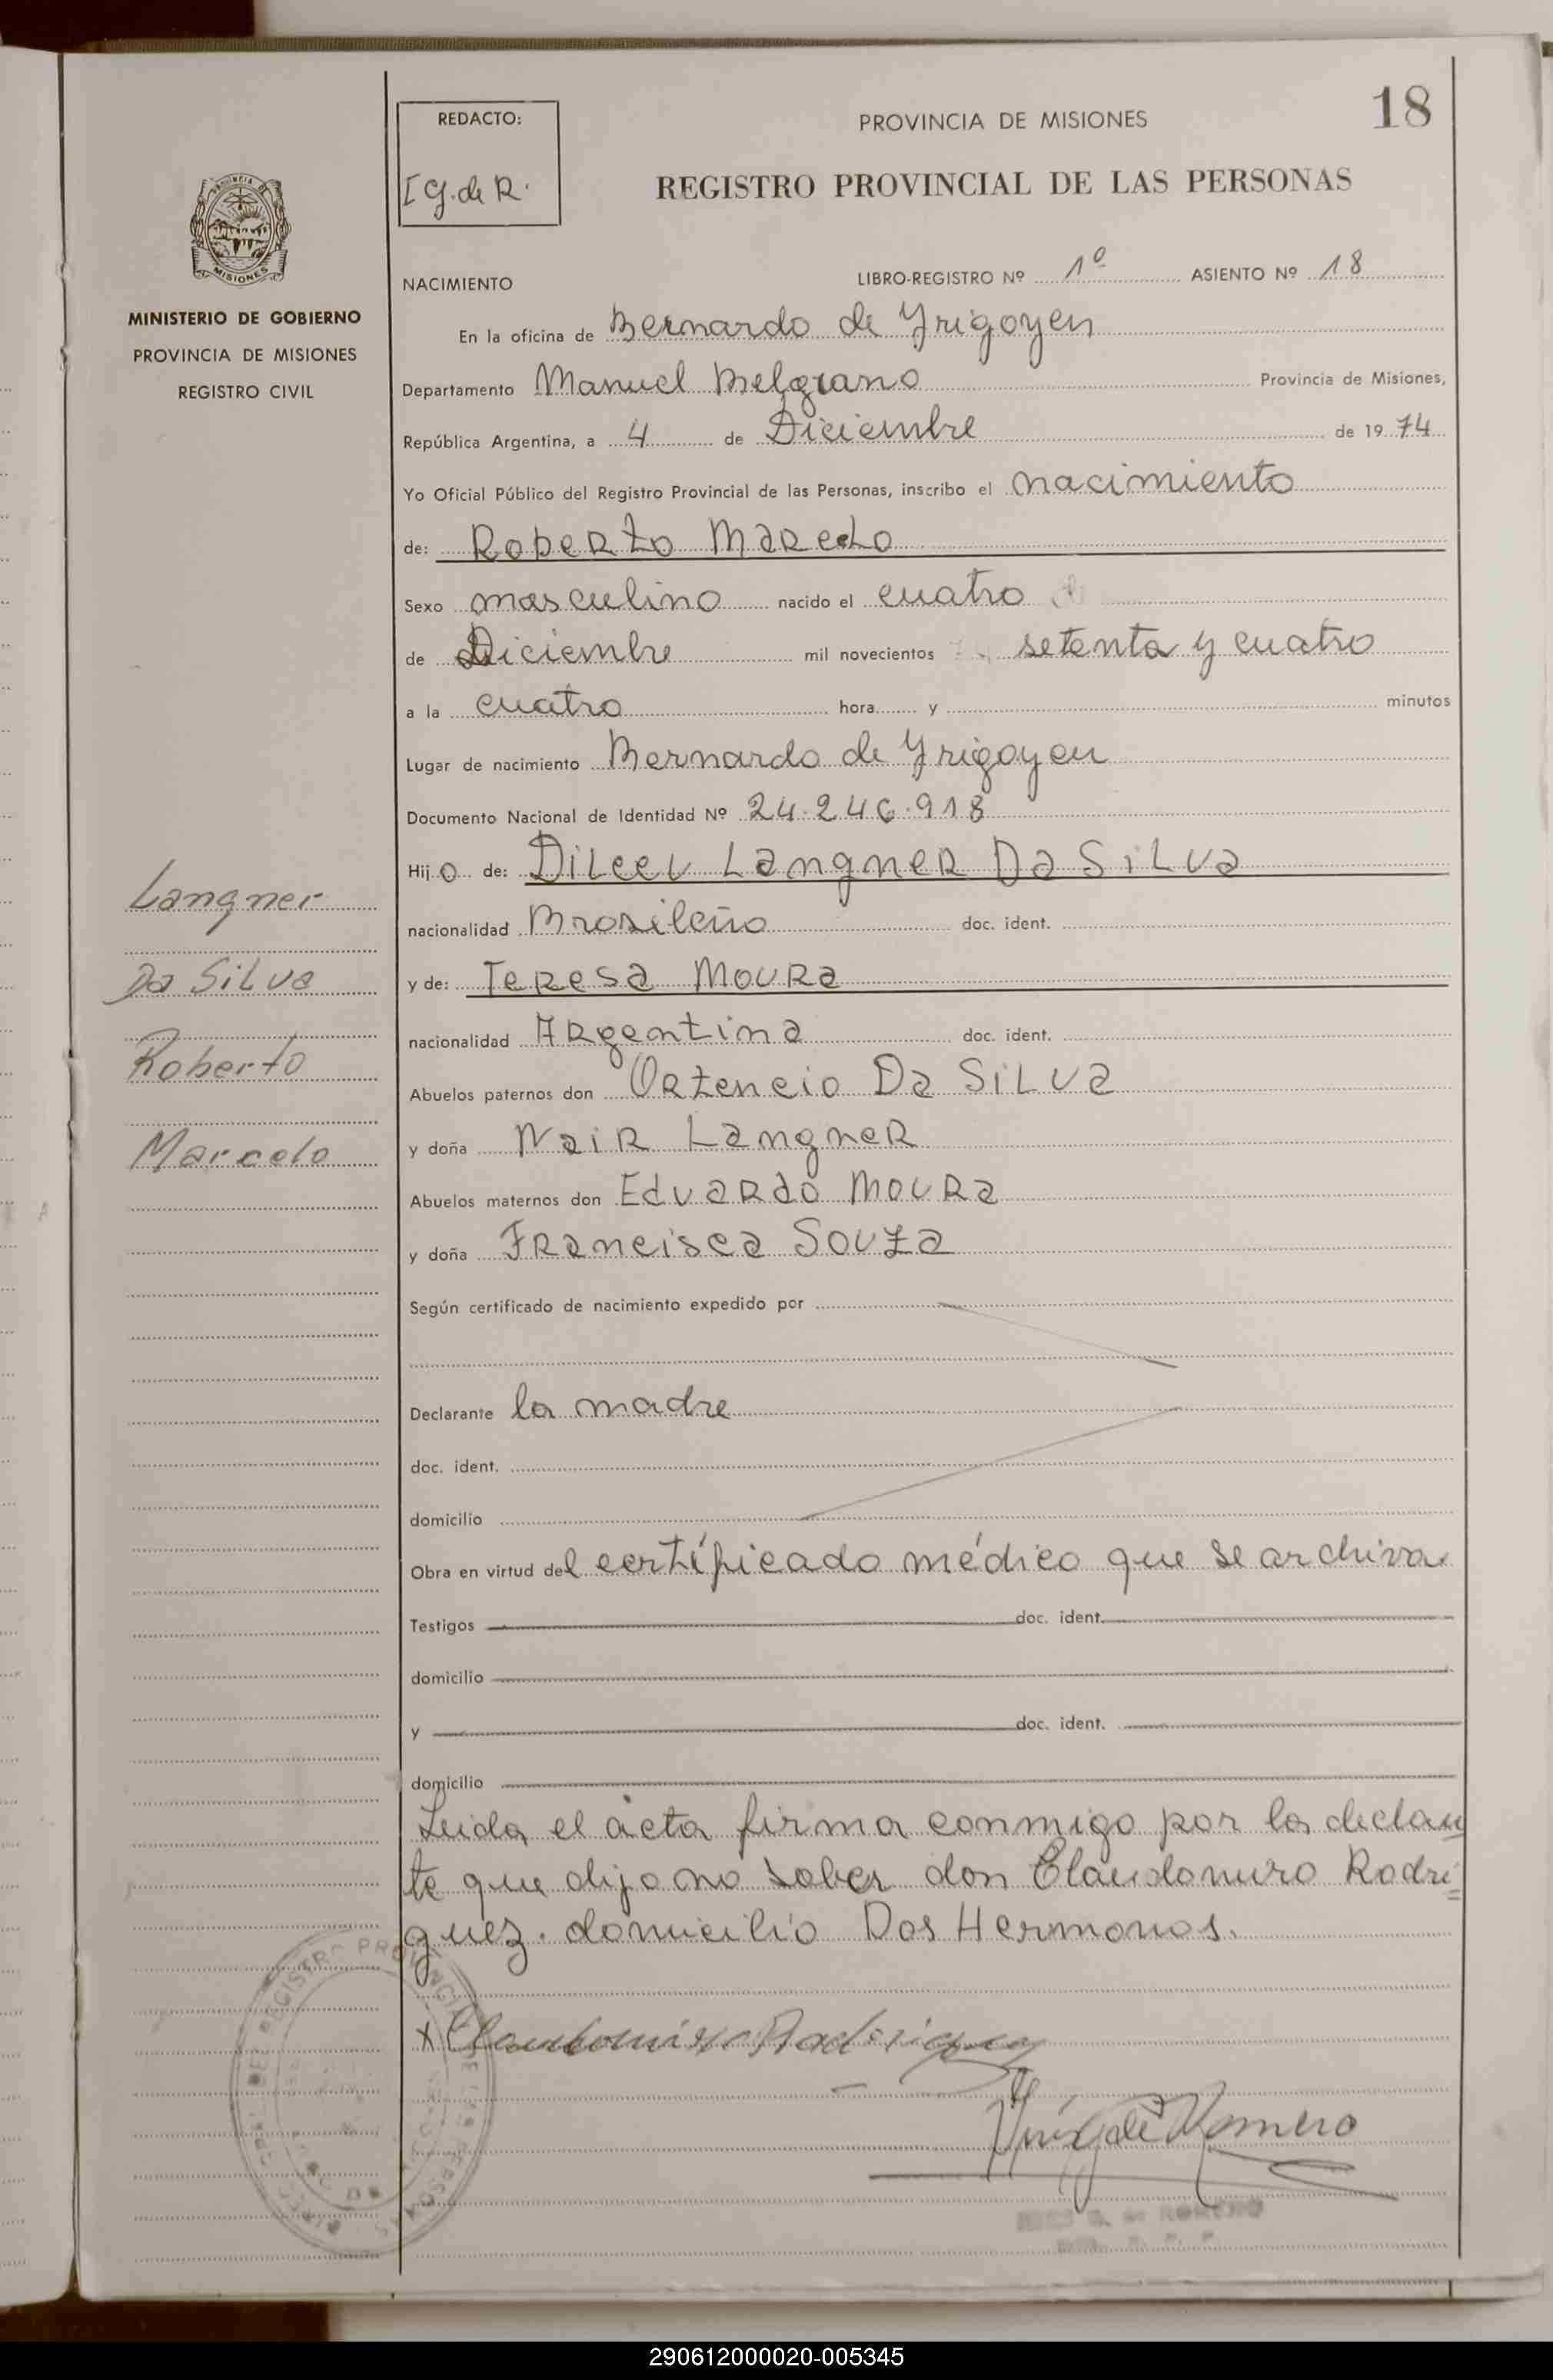 18
REDACTO:
I G. de R.
PROVINCIA DE MISIONES
REGISTRO PROVINCIAL DE LAS PERSONAS
MISIONES
MINISTERIO DE GOBIERNO
PROVINCIA DE MISIONES
REGISTRO CIVIL
NACIMIENTO LIBRO-REGISTRO Nº 1º ASIENTO Nº 18
En la oficina de Bernardo de Yrigoyen
Departamento Manuel Belgrano Provincia de Misiones,
República Argentina, a 4 de Diciembre de 1974
Yo Oficial Público del Registro Provincial de las Personas, inscribo el nacimiento
de: Roberto Marcelo
Sexo masculino nacido el cuatro
de Diciembre mil novecientos setenta y cuatro
a la cuatro hora y minutos
Lugar de nacimiento Bernardo de Yrigoyen
Documento Nacional de Identidad Nº 24.246.918
Hijo de: Dilceu Langner Da Silva
nacionalidad Brasileño doc. ident.
y de: Teresa Moura
nacionalidad Argentina doc. ident.
Abuelos paternos don Ortencio Da Silva
y doña Nair Langner
Abuelos maternos don Eduardo Moura
y doña Francisca Souza
Según certificado de nacimiento expedido por
Declarante la madre
doc. ident.
domicilio
Obra en virtud del certificado médico que se archiva
Testigos doc. ident.
domicilio
y doc. ident.
domicilio
Leida el acta firma conmigo por la declaran
te que dijo no saber don Claudomiro Rodri=
guez. domicilio Dos Hermanas.
x Claudomiro Rodriguez
G de Romero
Langner
Da Silva
Roberto
Marcelo
290612000020-005345